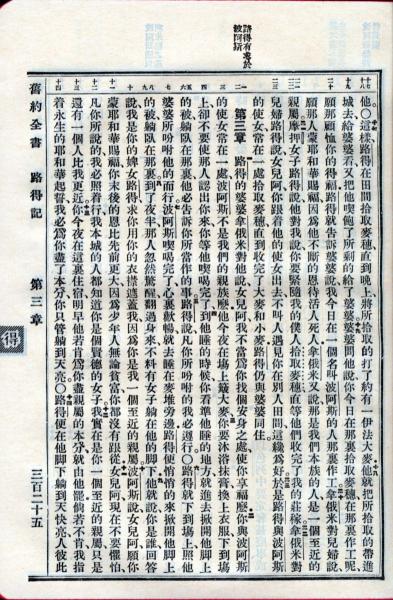 路得有意於
波阿斯
他○這樣路得在田間拾取麥穗直到晚上將所拾取的打了約有一伊法大麥他就把所拾取的帶進
城去給婆婆看又把他喫飽了所剩的給了婆婆婆婆問他說你今日在那裏拾取麥穗在那裏作工呢
願那顧恤你的得福路得就告訴婆婆說我今日在一個名叫波阿斯的人那裏作工拿俄米對兒婦說
願那人蒙耶和華賜福因為他不斷的恩待活人死人拿俄米又說那是我們本族的人是一個至近的
親屬摩押女子路得說他對我說你要緊隨我的僕人拾取麥穗直等他們收完了我的莊稼拿俄米對
兒婦路得說女兒阿你跟着他的使女出去不叫人遇見你在別人田間這纔為好於是路得與波阿斯
的使女常在一處拾取麥穗直到收完了大麥和小麥路得仍與婆婆同住
第三章 路得的婆婆拿俄米對他說女兒阿我不當為你找個安身之處使你享福麼你與波阿斯
的使女常在一處波阿斯不是我們的親族麼他今夜在場上簸大麥你要沐浴抹膏換上衣服下到場
上卻不要使那人認出你來你等他喫喝完了到他睡的時候你看準他睡的地方就進去掀開他腳上
的被躺臥在那裏他必告訴你所當作的事路得說凡你所吩咐的我必遵行○路得就下到場上照他
婆婆所吩咐他的而行波阿斯喫喝完了心裏歡暢就去睡在麥堆旁邊路得便悄悄的來掀開他腳上
的被躺臥在那裏到了夜半那人忽然驚醒翻過身來不料有女子躺在他的腳下他就說你是誰回答
說我是你的婢女路得求你用你的衣襟遮蓋我因為你是我一個至近的親屬波阿斯說女兒阿願你
蒙耶和華賜福你末後的恩比先前更大因為少年人無論貧富你都沒有跟從女兒阿現在不要懼怕
凡你所說的我必照着行我本城的人都知道你是個賢德的女子我實在是你一個至近的親屬只是
還有一個人比我更近你今夜在這裏住宿明早他若肯為你盡親屬的本分就由他罷倘若不肯我指
着永生的耶和華起誓我必為你盡了本分你只管躺到天亮○路得便在他腳下躺到天快亮人彼此
舊約全書 路得記 第三章 三百二十五
得